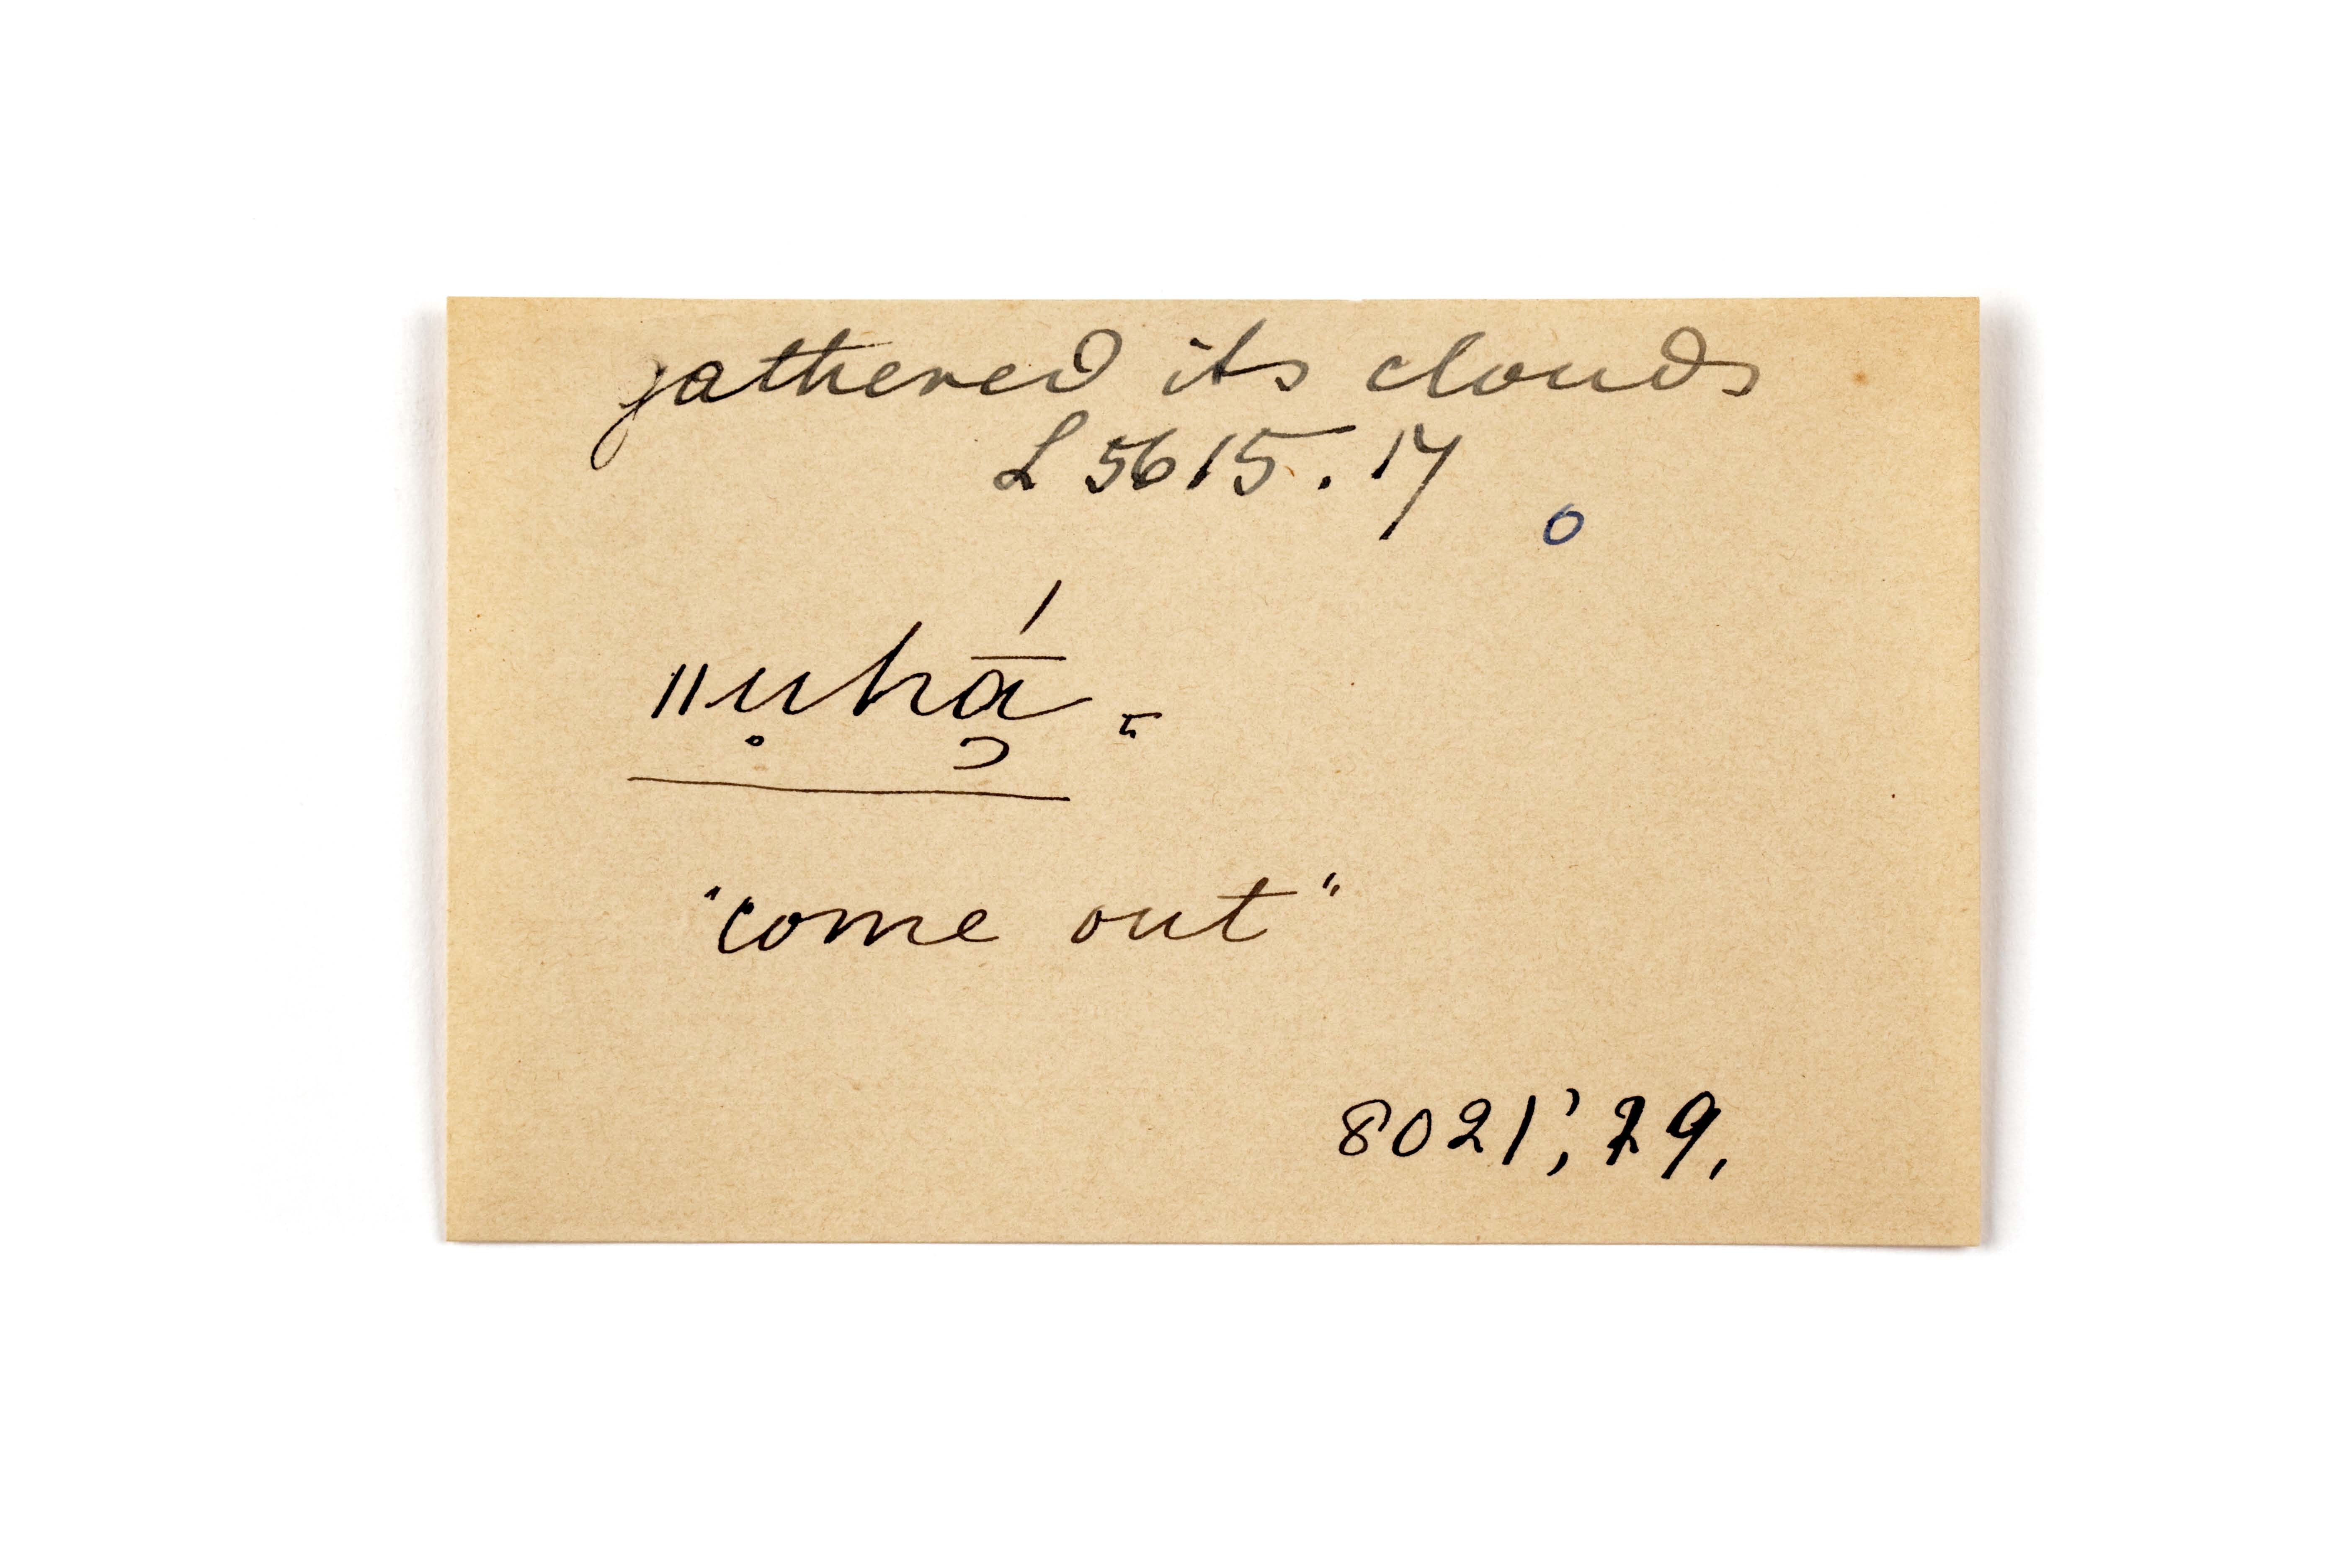 gathered its clouds
L 5615. 17
o
ǁu̥hą̄́.
"come out"
8021', 29,